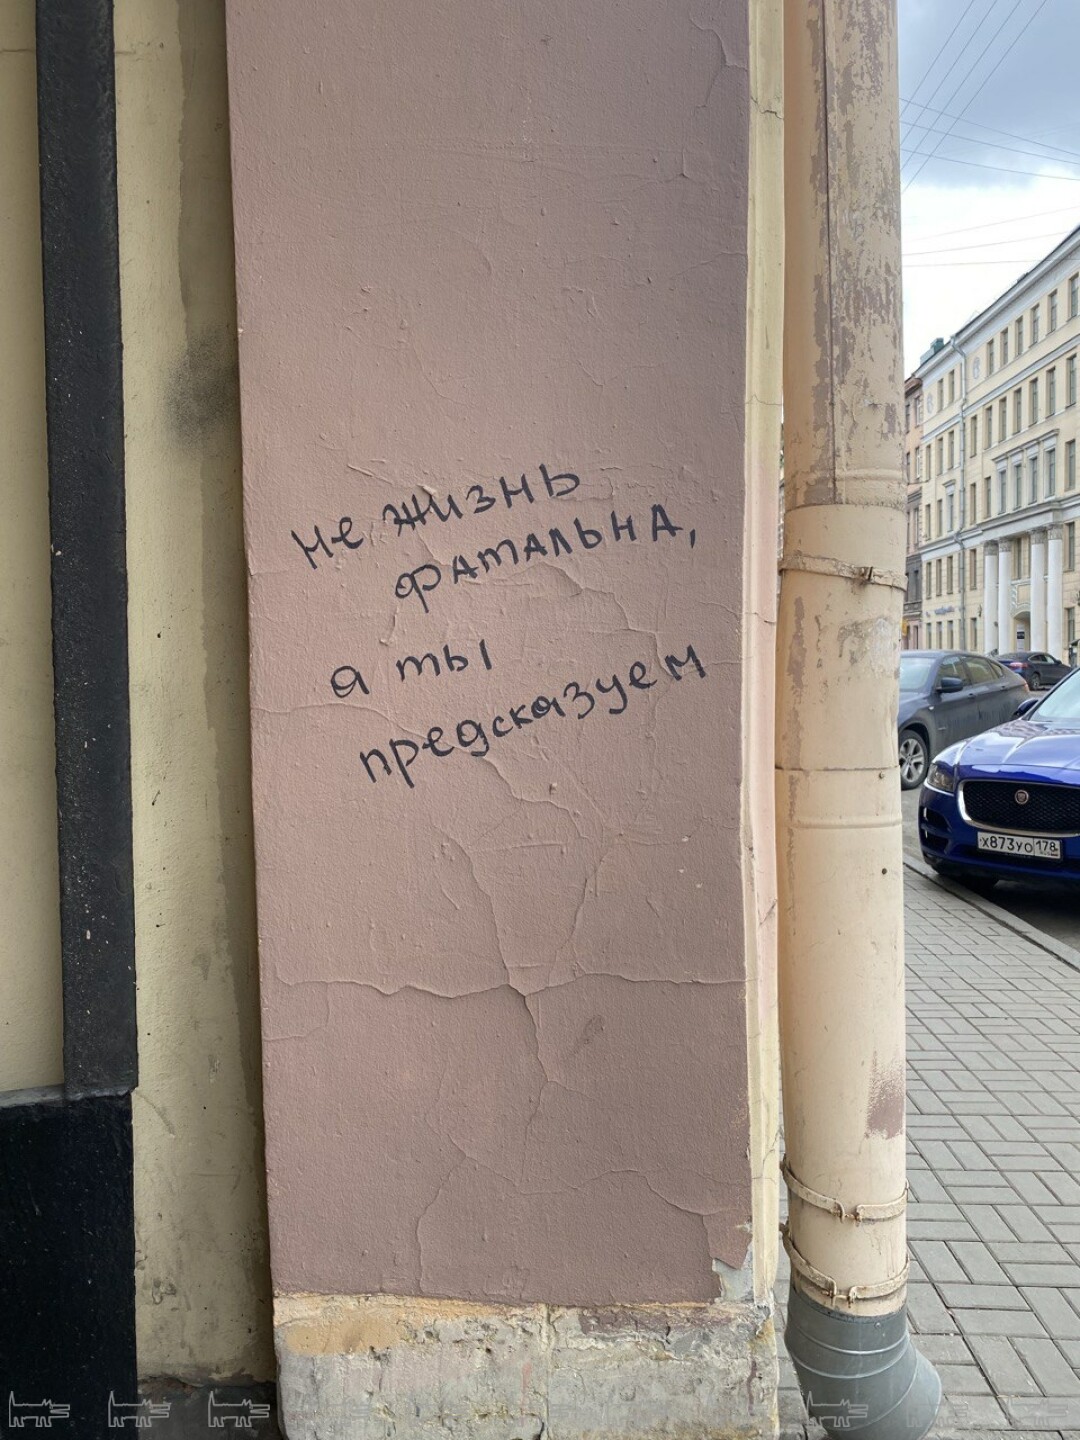 не жизнь
фатальна,
а ты
предсказуем
х873уо 178